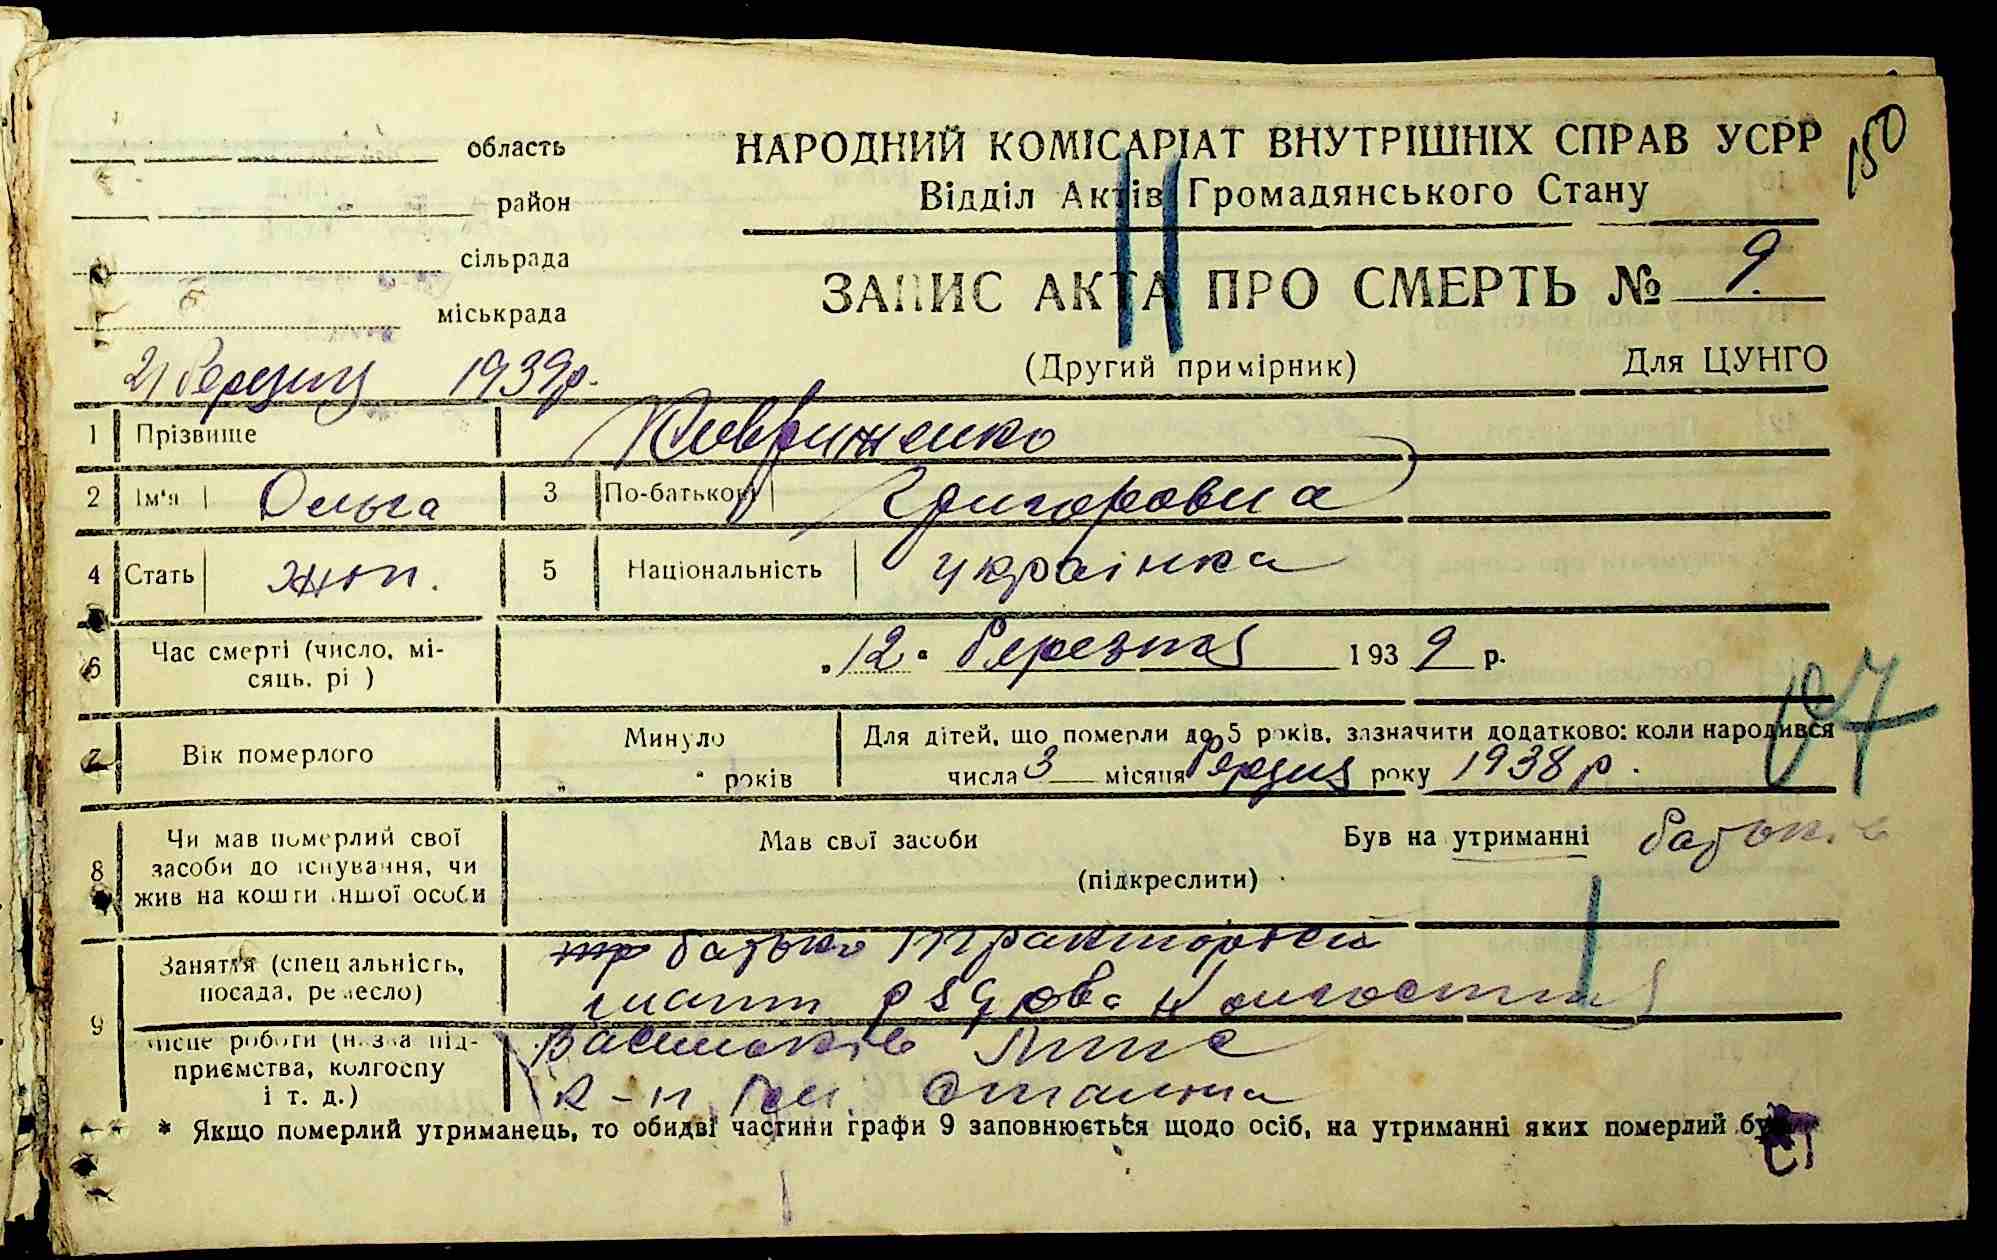 150
область
НАРОДНИЙ КОМІСАРІАТ ВНУТРІШНІХ СПРАВ УСРР
район
Відділ Актів Громадянського Стану
сільрада
міськрада
ЗАПИС АКТА ПРО СМЕРТЬ № 9.
21 березня 1939р.
(Другий примірник)
Для ЦУНГО
1 Прізвище
2 Ім'я Ольга 3 По-батькові Григоровна
4 Стать жін. 5 Національність українка
6 Час смерті (число, мі-
сяць, рі ) „12" березня 1939 р.
7 Вік померлого
Минуло
років
Для дітей, що померли до 5 років, зазначити додатково: коли народився
числа 3 місяця березня року 1938 р.
8 Чи мав померлий свої
засоби до існування, чи
жив на кошти іншої особи
Мав свої засоби
Був на утриманні батьків
(підкреслити)
9 Заняття (спеціальність,
посада, ремесло)
батько тракторної
рядова колгоспниця
місце роботи (назва під-
приємства, колгоспу
і т. д.)
МТС
к-п ім. Сталіна
* Якщо померлий утриманець, то обидві частини графи 9 заповнюється щодо осіб, на утриманні яких померлий був.